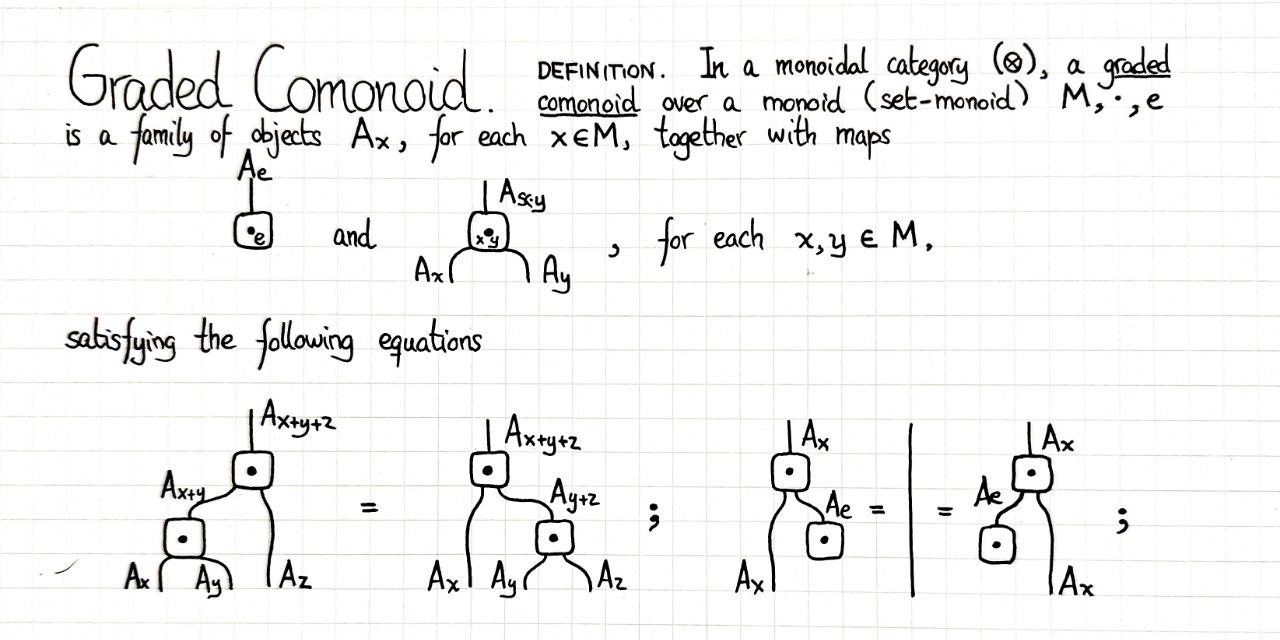 Graded Comonoid. DEFINITION. In a monoidal category (⊗), a graded
comonoid over a monoid (set-monoid) M, ·, e
is a family of objects Ax, for each x∈M, together with maps
Ae
e
and
Ax·y
x y
Ax
Ay
, for each x,y ∈ M,
satisfying the following equations
Ax+y+z
Ax+y
Ax Ay Az
=
Ax+y+z
Ay+z
Ax Ay Az
;
Ax
Ae
Ax
= | =
Ax
Ae
Ax
;